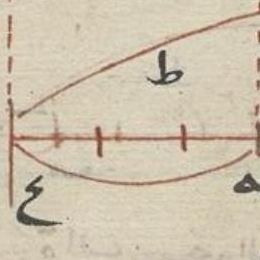 ط
ع
ه